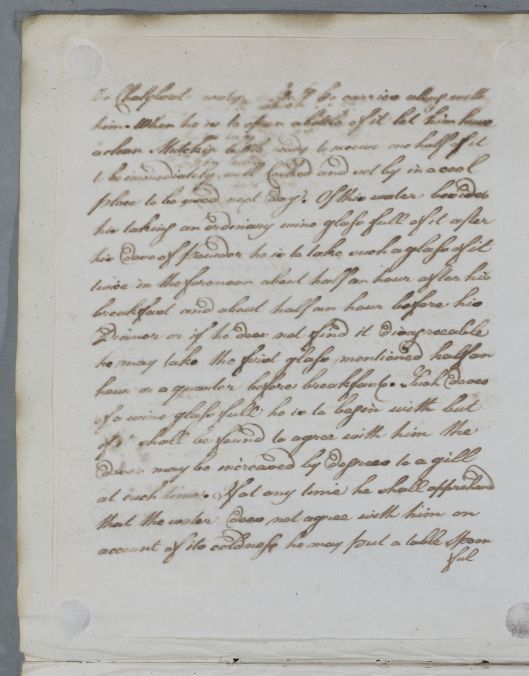 The Chalybeat water is to be carried along with
him. When he is to open a bottle of it let him have
a clean Mutchkin bottle ready to receive one half of it
to be immediately well corked and set by in a cool
place to be good next day. Of this water besides
his taking an ordinary wine glass full of it after
his dose of powder he is to take such a glass of it
twice in the forenoon about half an hour after his
breakfast and about half an hour before his
Dinner or if he does not find it disagreeable
he may take the first glass mentioned half an
hour or a quarter before breakfast. Such doses
of a wine glass full he is to begin with but
if shall be found to agree with him the
doses may be increased by degrees to a gill
at each time. If at any time he shall apprehend
that the water does not agree with him on
account of its coldness he may put a table spoon
ful